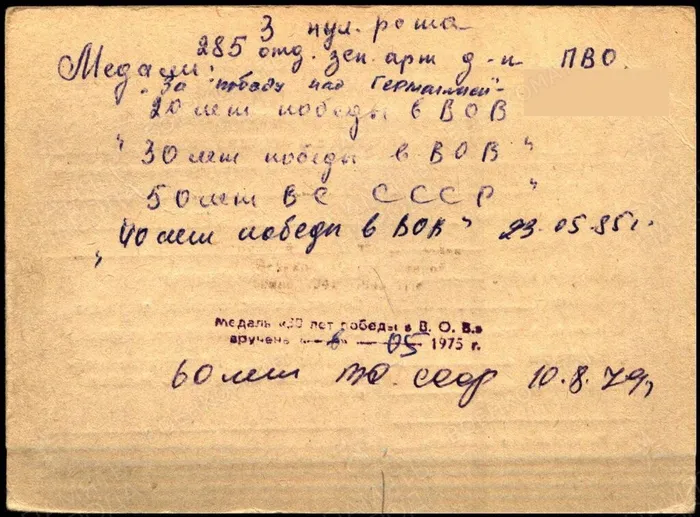 3 пул. рота
285 отд. зен. арт д-н ПВО.
Медали:
"За победу над Германией"
20 лет победы в ВОВ
" 30 лет победы в ВОВ "
50 лет ВС СССР "
" 40 лет победы в ВОВ " 23.05.85 г.
Медаль «30 лет победы в В. О. В.»
вручена «—6» — 05 1975 г.
60 лет ВС СССР 10.8.79 г.